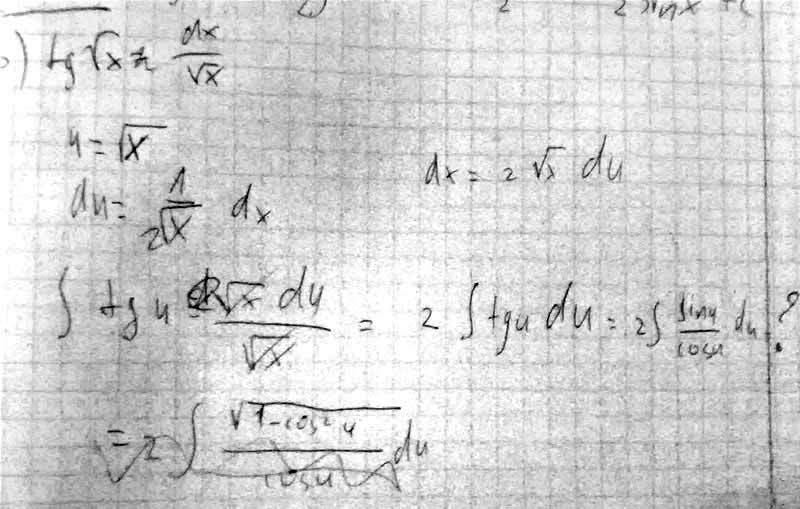 2 sinx + C
) tg √x · dx/√x
u = √x
du = 1/(2√x) dx
dx = 2 √x du
∫ tg u 2√x du/√x = 2 ∫ tgu du = 2∫ sinu/cosu du ?
= 2 ∫ √(1-cos²u)/cosu du